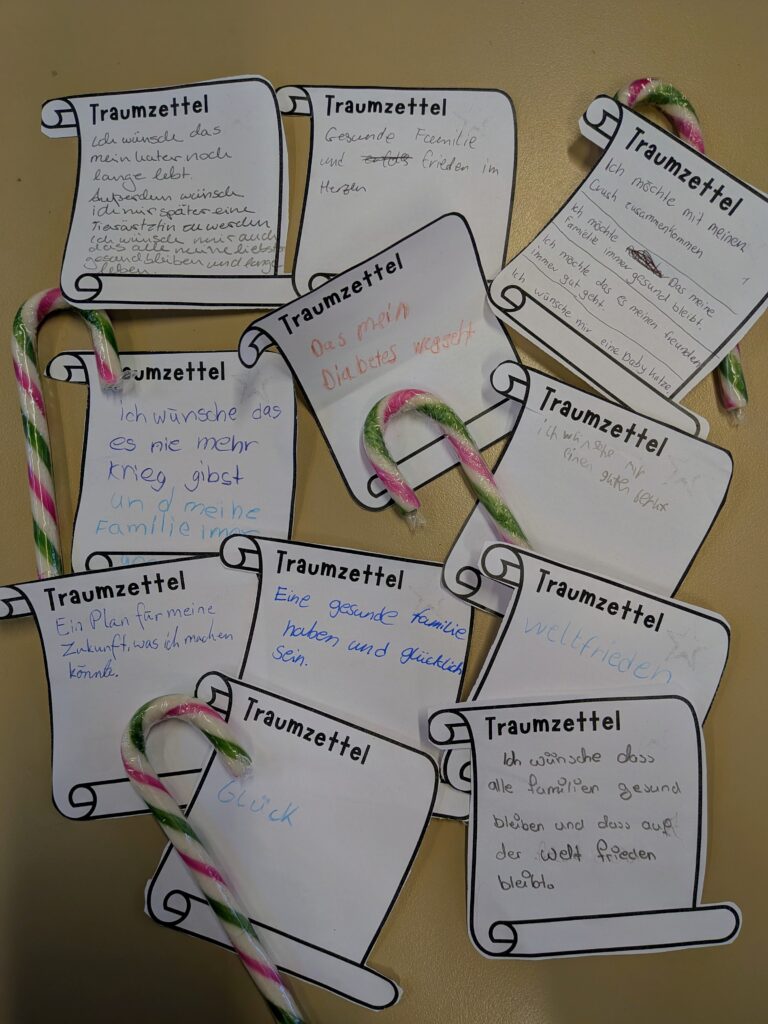 Traumzettel
Ich wünsche das
mein Kater noch
lange lebt.
Außerdem wünsche
ich mir später eine
Tierärtztin zu werden
ich wünsche mir auch
das alle meine liebsten
gesund bleiben und lange
leben
Traumzettel
Gesunde Familie
und frieden im
Herzen
Traumzettel
Ich möchte mit meinen
Crush zusammenkommen
Ich möchte Das meine
Familie immer gesund bleibt.
Ich möchte das es meinen freunden
immer gut geht
Ich wünsche mir eine Baby Katze
Traumzettel
Das mein
Diabetes weggeht
umzettel
Ich wünsche das
es nie mehr
Krieg gibst
und meine
Familie immer
Traumzettel
ich wünsche mir
einen guten
Traumzettel
Ein Plan für meine
Zukunft, was ich machen
könnte.
Traumzettel
Eine gesunde familie
haben und glücklich
sein.
Traumzettel
Weltfrieden
Traumzettel
Glück
Traumzettel
Ich wünsche dass
alle familien gesund
bleiben und dass auf
der welt frieden
bleibt.